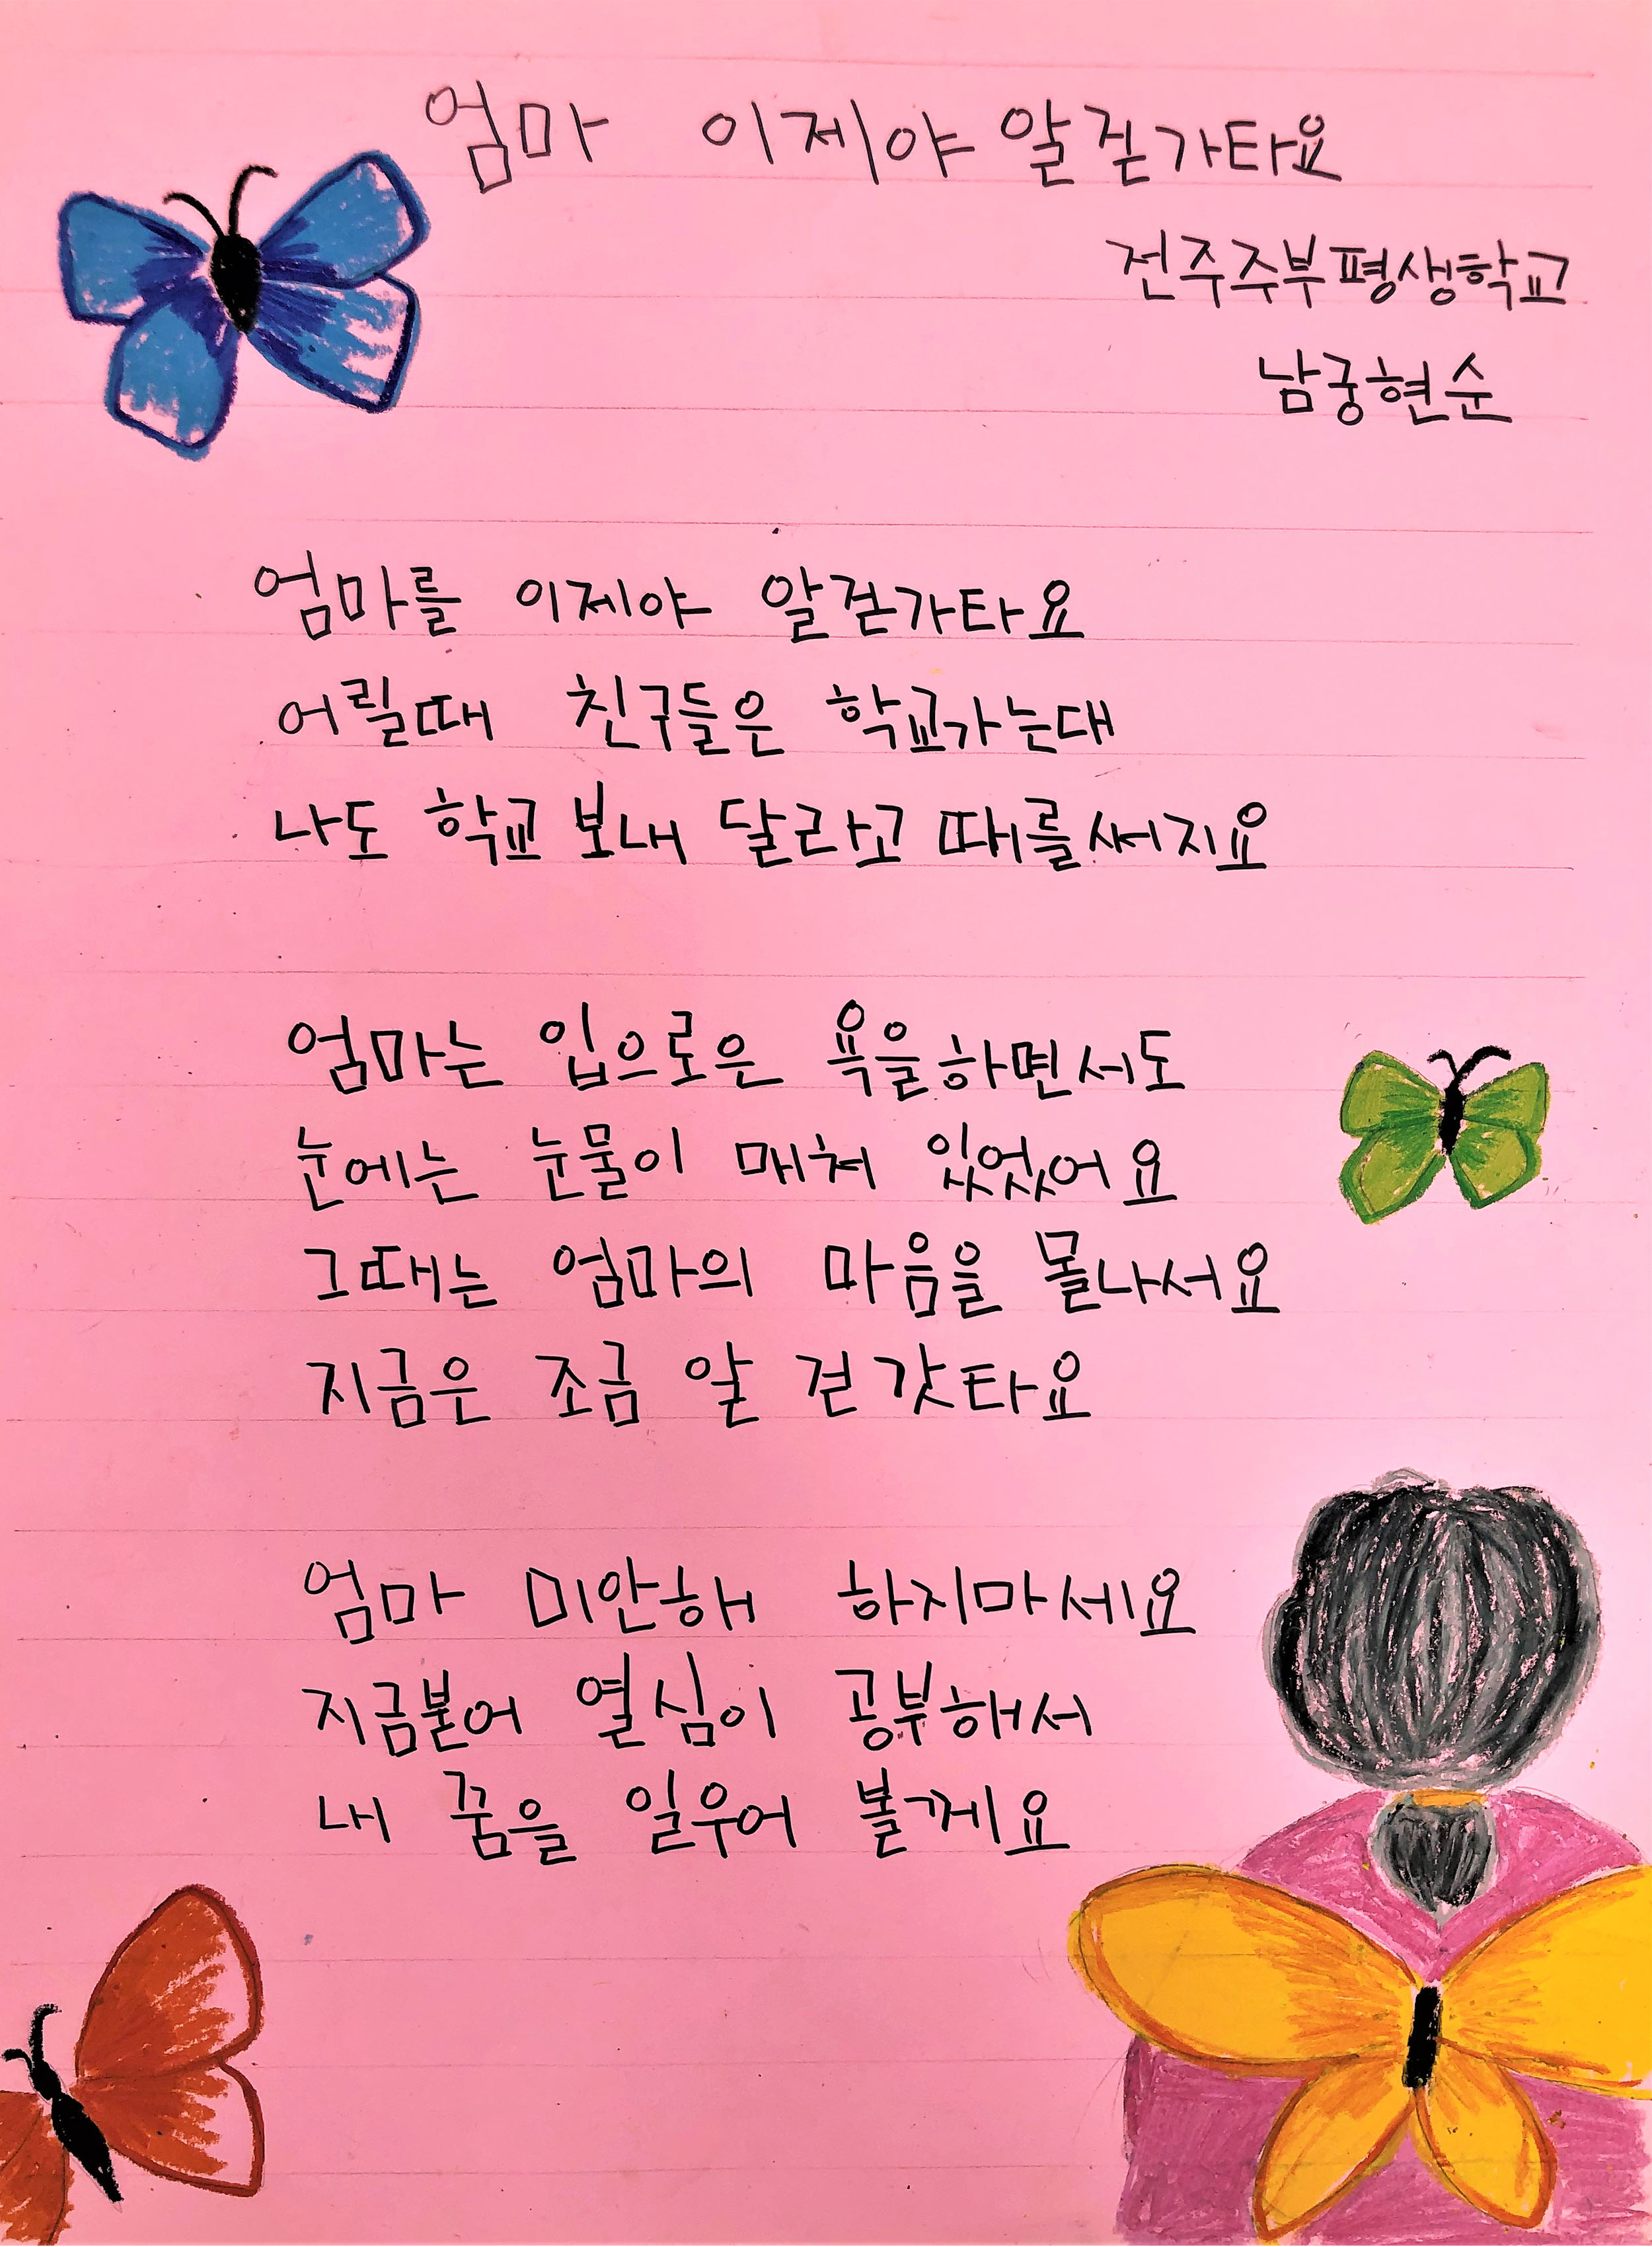 엄마 이제야 알걷가타요
전주주부평생학교
남궁현순
엄마를 이제야 알걷가타요
어릴때 친구들은 학교가는대
나도 학교 보내 달라고 때를써지요
엄마는 입으로은 욕을하면서도
눈에는 눈물이 매쳐 있었어요
그때는 엄마의 마음을 몰나서요
지금은 조금 알 걷 갓타요
엄마 미안해 하지마세요
지금붇어 열심이 공부해서
내 꿈을 일우어 볼께요